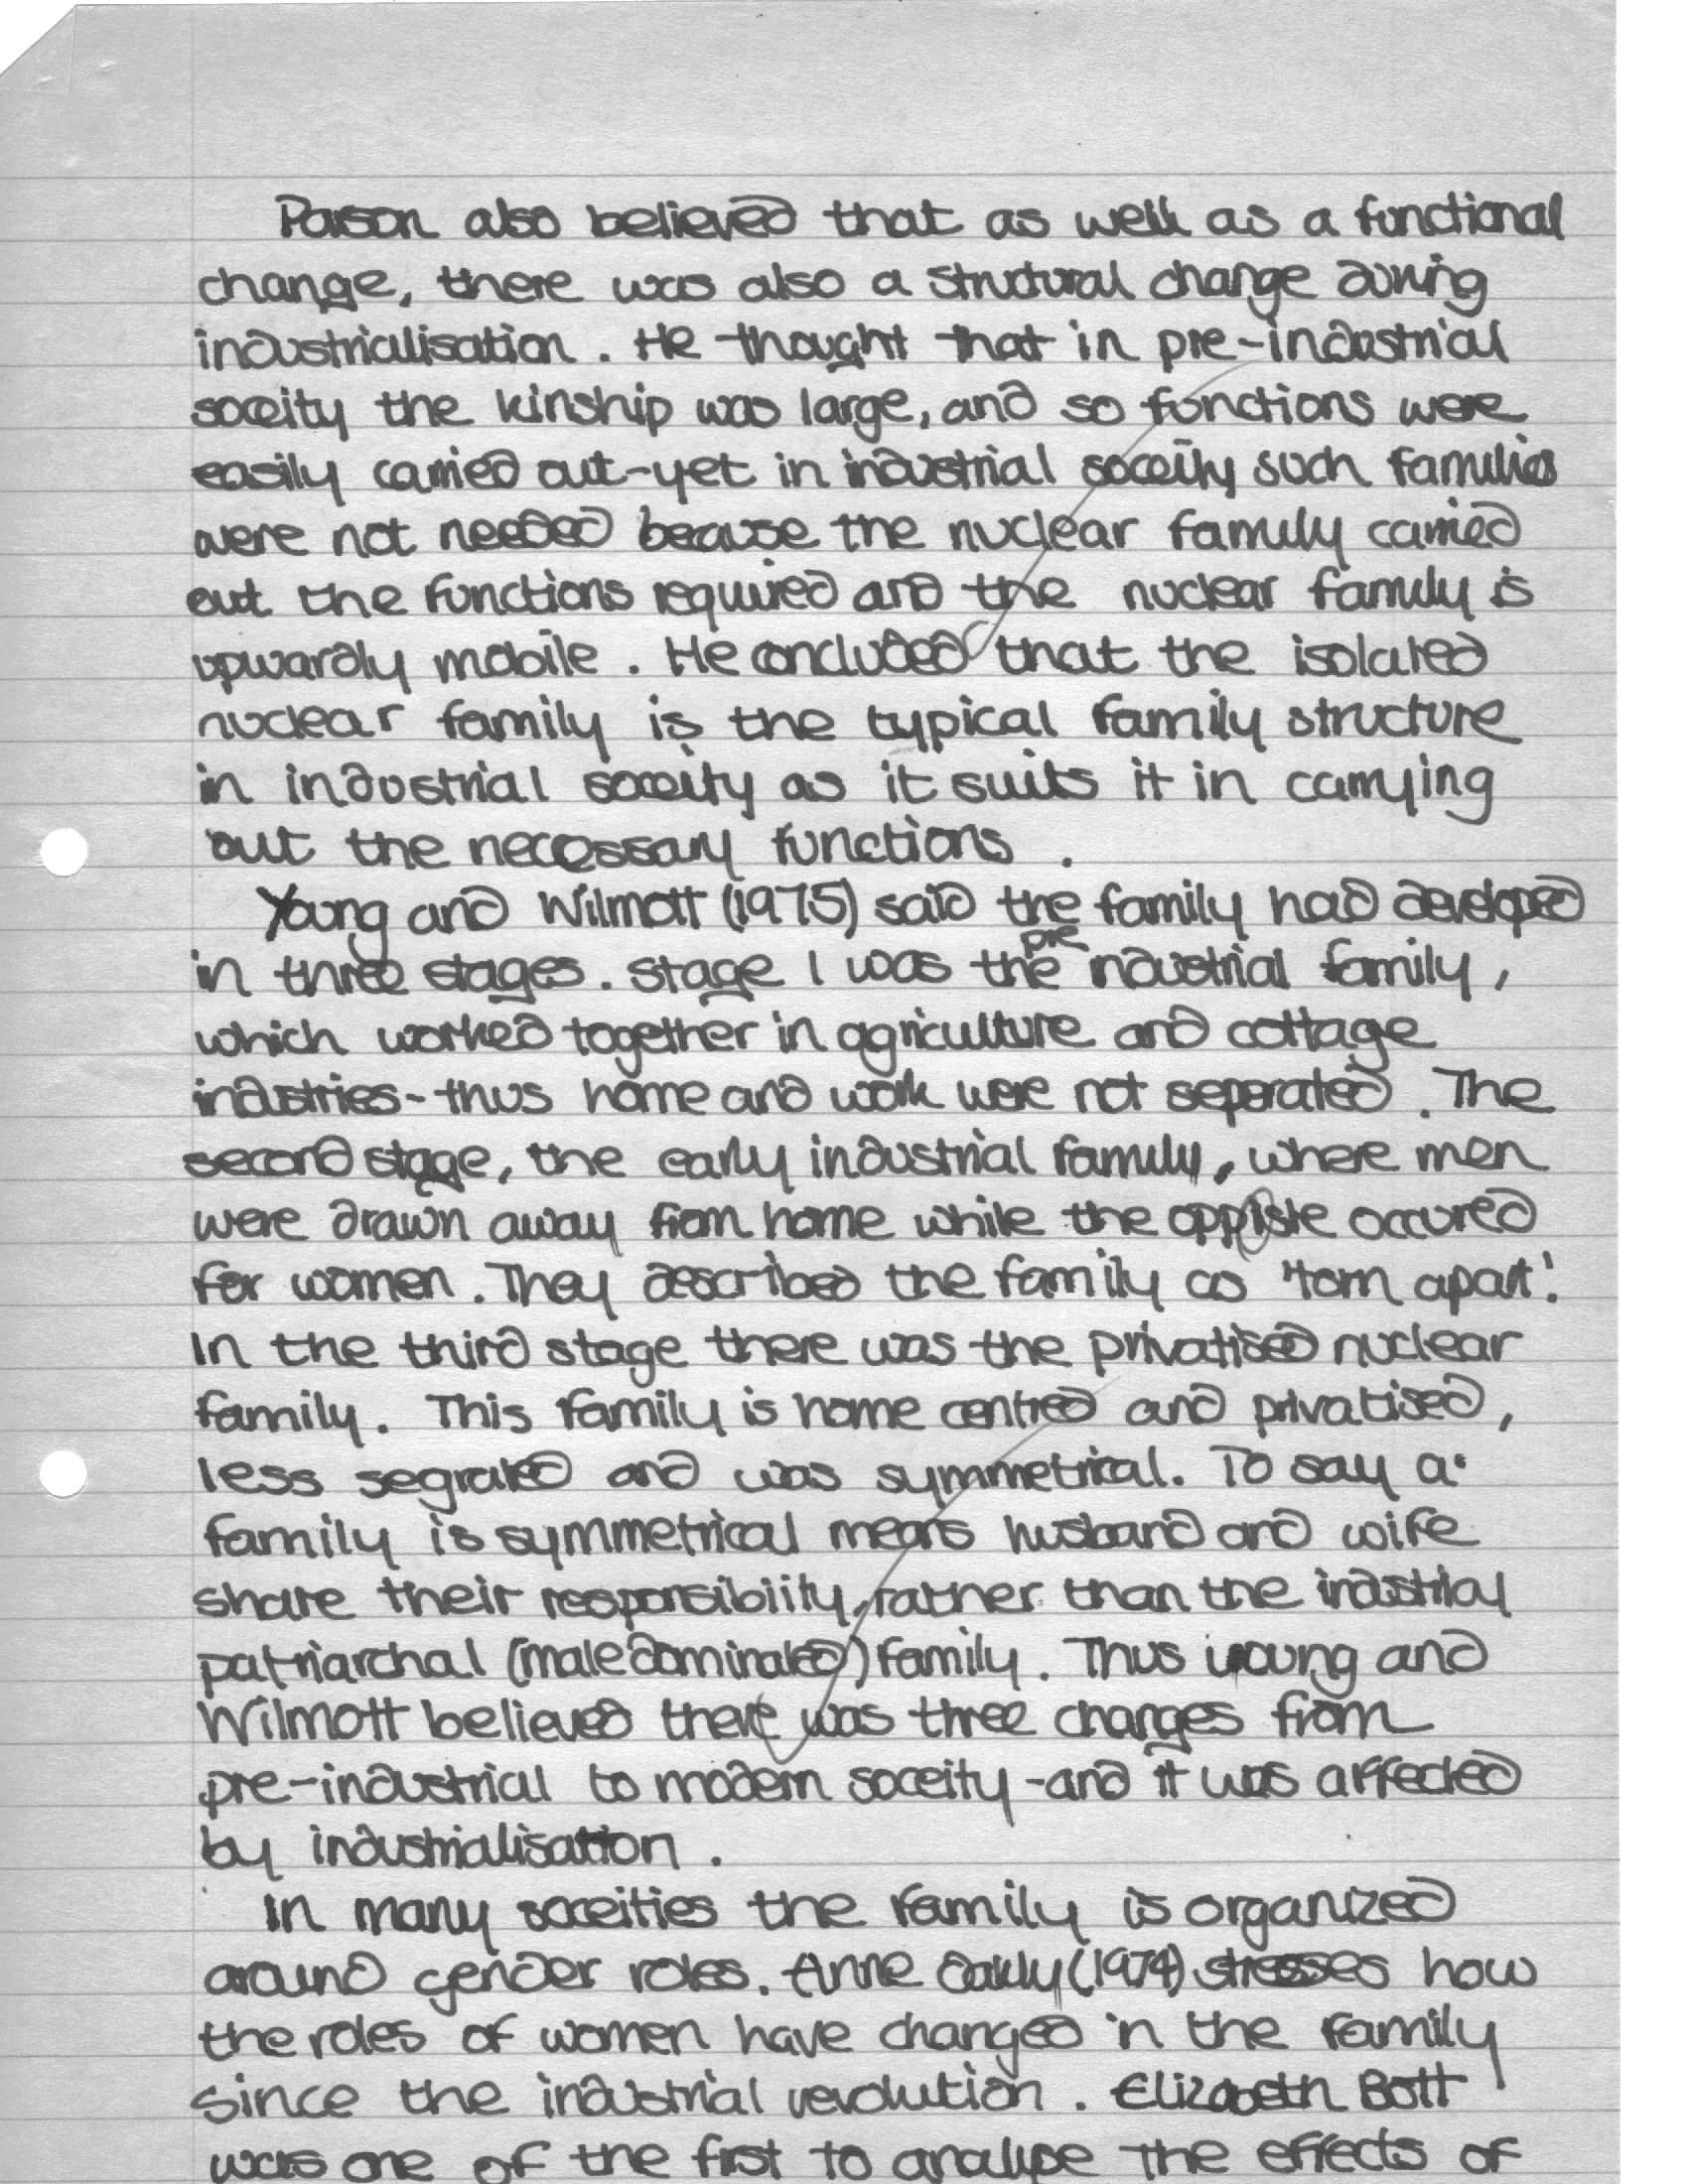 Parson also believed that as well as a functional
change, there was also a structural change during
industrialisation. He thought that in pre-industrial
soceity the kinship was large, and so functions were
easily carried out-yet in industrial soceity such families
were not needed because the nuclear family carried
out the functions required and the nuclear family is
upwardly mobile. He concluded that the isolated
nuclear family is the typical family structure
in industrial soceity as it suits it in carrying
out the necessary functions.
Young and Wilmott (1975) said the family had developed
in three stages. Stage 1 was the pre industrial family,
which worked together in agriculture and cottage
industries- thus home and work were not seperated. The
second stage, the early industrial family, where men
were drawn away from home while the oppisite occured
for women. They described the family as 'torn apart'.
In the third stage there was the privatised nuclear
family. This family is home centred and privatised,
less segrated and was symmetrical. To say a
family is symmetrical means husband and wife
share their responsibiity, rather than the industrial
patriarchal (male dominated) family. Thus young and
Wilmott believed there was three changes from
pre-industrial to modern soceity -and it was affected
by industrialisation.
In many soceities the family is organized
around gender roles. Anne Oakly (1974) stresses how
the roles of women have changed in the family
since the industrial revolution. Elizabeth Bott
was one of the first to analyse the effects of